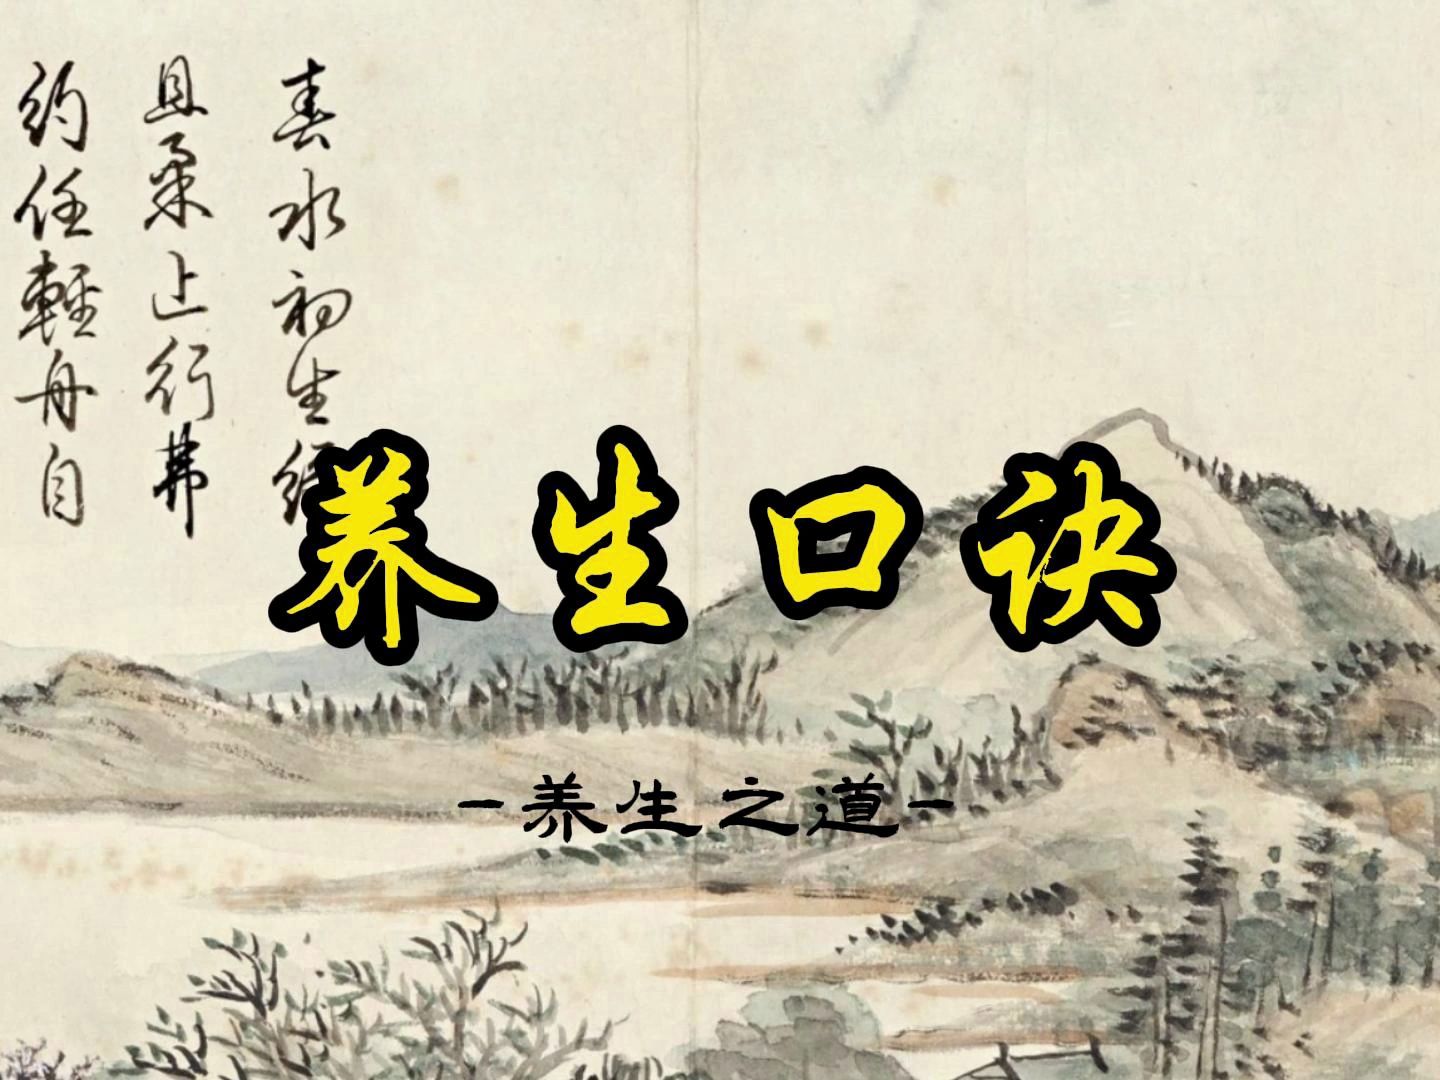 春水初生
且柔上行弗
约任輕舟自
养生口诀
-养生之道-